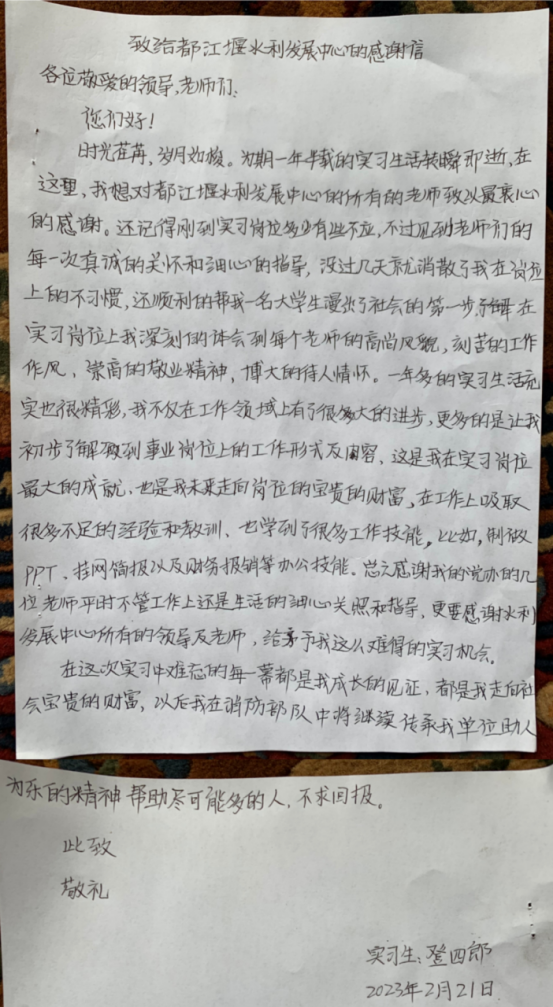 致给都江堰水利发展中心的感谢信
各位敬爱的领导,老师们:
您们好!
时光荏苒,岁月如梭。为期一年半载的实习生活转瞬即逝,在
这里,我想对都江堰水利发展中心的所有的老师致以最衷心
的感谢。还记得刚到实习岗位多少有些不应,不过见到老师们的
每一次真诚的关怀和细心的指导,没过几天就消散了我在岗位
上的不习惯,还顺利的帮我一名大学生漫出了社会的第一步,在
实习岗位上我深刻的体会到每个老师的高尚风貌,刻苦的工作
作风,崇高的敬业精神,博大的待人情怀。一年多的实习生活充
实也很精彩,我不仅在工作领域上有了很多大的进步,更多的是让我
初步了解到事业岗位上的工作形式及内容、这是我在实习岗位
最大的成就,也是我未来走向岗位的宝贵的财富,在工作上吸取
很多不足的经验和教训、也学到了很多工作技能,比如,制做
PPT、挂网简报以及财务报销等办公技能。总之感谢我的党办的几
位老师平时不管工作上还是生活的细心关照和指导,更要感谢水利
发展中心所有的领导及老师,给予我这么难得的实习机会。
在这次实习中难忘的每一幕都是我成长的见证,都是我走向社
会宝贵的财富,以后我在消防部队中将继续传承我单位助人
为乐的精神帮助尽可能多的人,不求回报。
此致
敬礼
实习生:登四郎
2023年2月21日